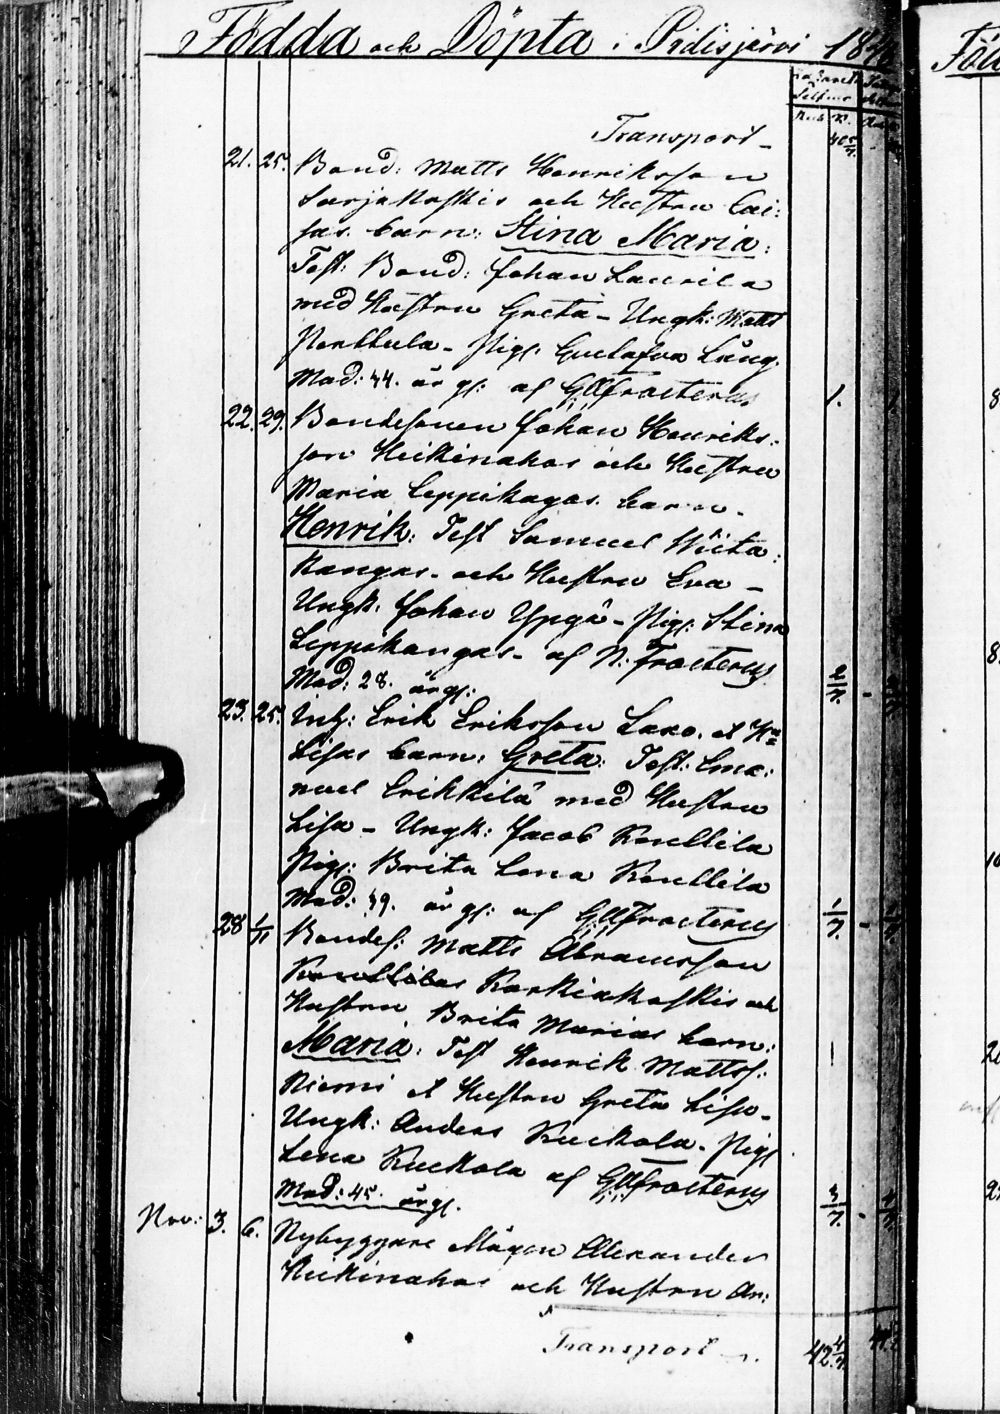 Födda och Döpta i Pidisjärvi 184
Transport
21. 25. Bond: Matts Henriksson
Sarjakoskis och Hustru Cai:
sas barn: Stina Maria:
Test: Bond: Johan Laurila
med Hustru Greta - Ungk: Matts
Perttula - Pig: Gustafva Lång.
Mod: 44. år g: af G
1.
22. 29. Bondesonen Johan Henriks:
son Heikinahos och Hustru
Maria Leppikagas barn.
Henrik: Test Samuel Wiita:
kangas. och Hustru Eva -
Ungk. Johan Ypyä - Pig: Stina
Leppikangas - af N:
Mod: 28. år g:
23. 25. Inh: Erik Eriksson Laxo. et Hu
Lisas barn: Greta: Test: Ema:
nuel Erikkilä med Hustru
Lisa - Ungk: Jacob Knuttila
Pig: Brita Lena Knuttila
Mod: 39. år g: af G
28 1/11 Bondes: Matts Abramsson
Knuttilas Karkiakoskis och
Hustru Brita Marias barn:
Maria: Test Henrik Matts:
Niemi et Hustru Greta Lisa -
Ungk: Anders Kuckola - Pig
Lena Kuckola af G
Mod: 45. år g.
Nov: 3. 6. Nybyggare Mågen Alexander
Heikinahos och Hustru An:
Transport 42 4/7